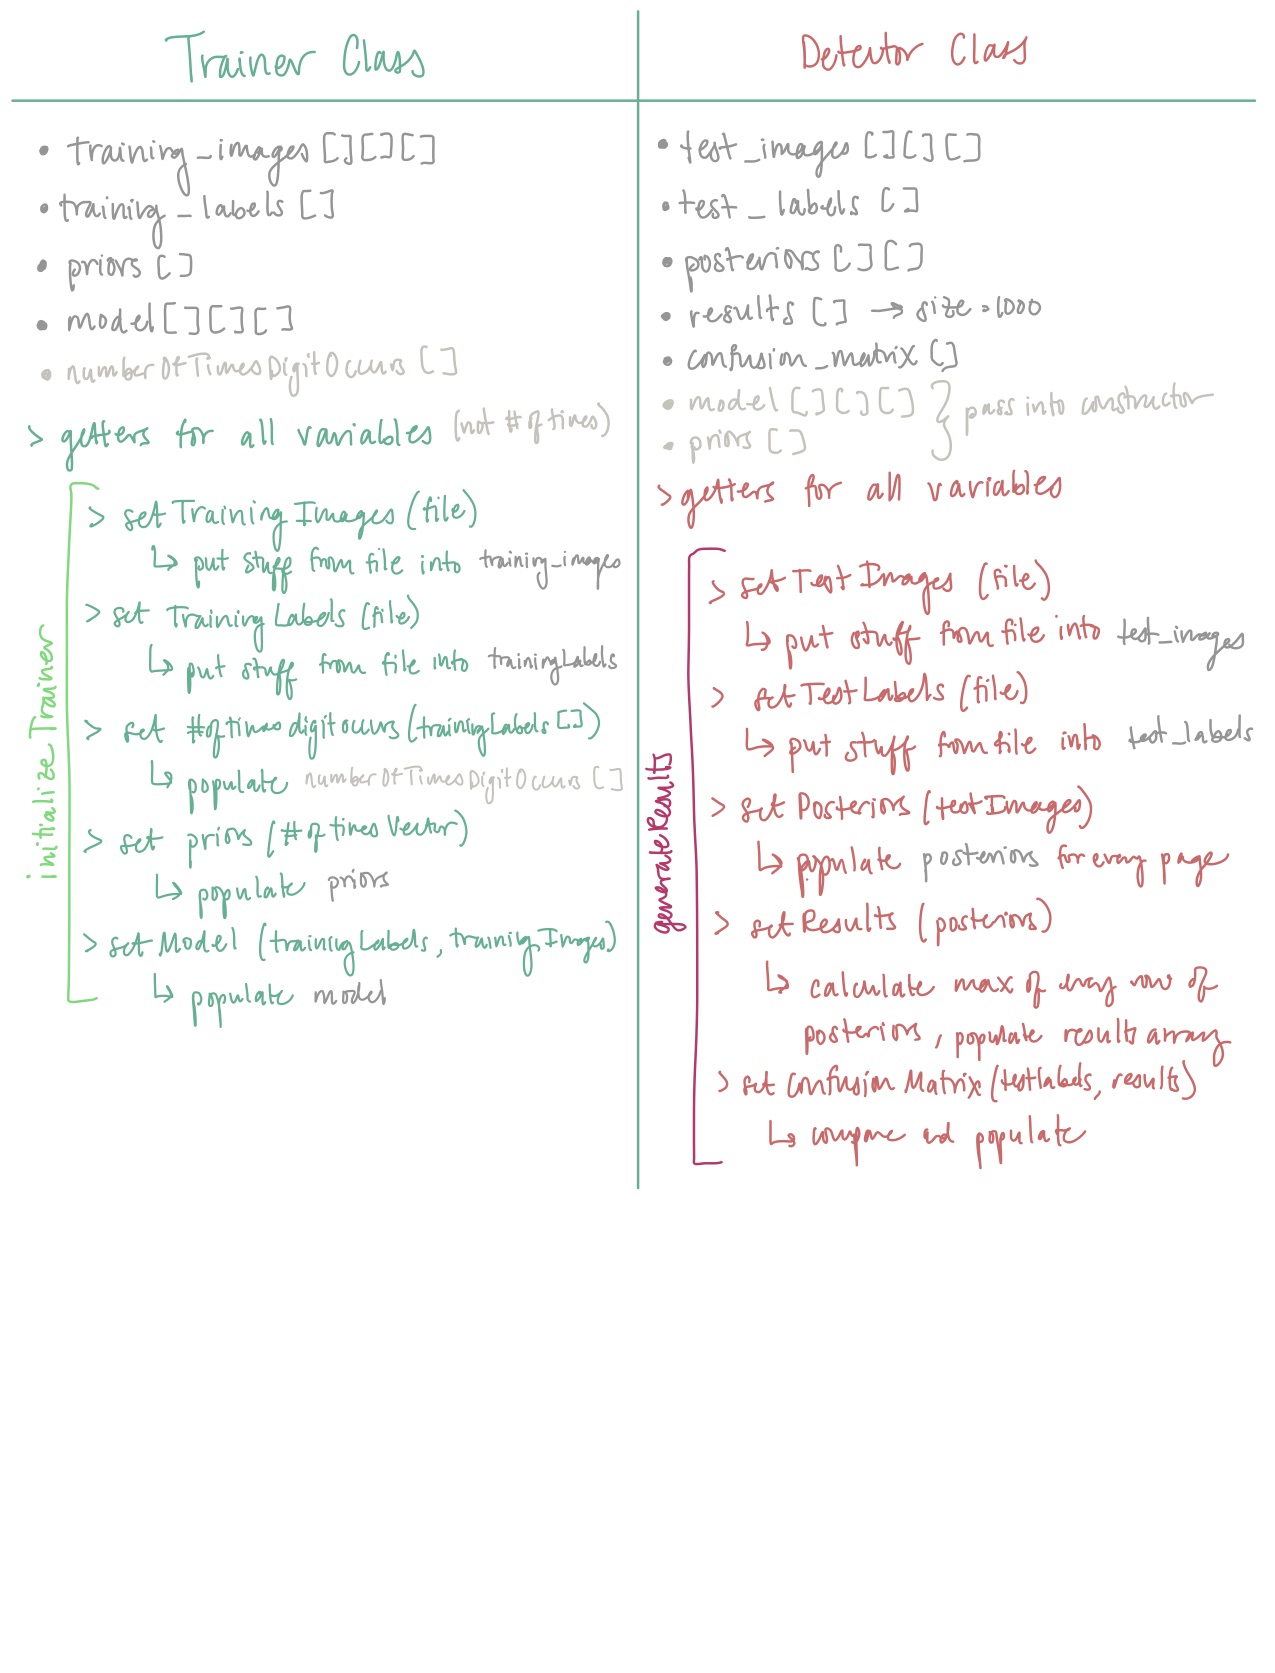 Trainer Class
• training_images [][][]
• training_labels []
• priors []
• model[][][]
• numberOfTimesDigitOccurs []
> getters for all variables (not # of times)
initialize Trainer
> set Training Images (file)
↳ put stuff from file into training_images
> set Training Labels (file)
↳ put stuff from file into trainingLabels
> set #of times digit occurs (trainingLabels [])
↳ populate numberOfTimesDigitOccurs []
> set priors (# of times Vector)
↳ populate priors
> set Model (trainingLabels, training Images)
↳ populate model
Detector Class
• test_images [][][]
• test_labels []
• posteriors [][]
• results [] → size = 1000
• confusion_matrix []
• model [][][] } pass into constructor
• priors []
> getters for all variables
generate Results
> set Test Images (file)
↳ put stuff from file into test_images
> set Test Labels (file)
↳ put stuff from file into test_labels
> set Posteriors (testImages)
↳ populate posteriors for every page
> set Results (posteriors)
↳ calculate max of every row of
posteriors, populate results array
> set Confusion Matrix (testlabels, results)
↳ compare and populate